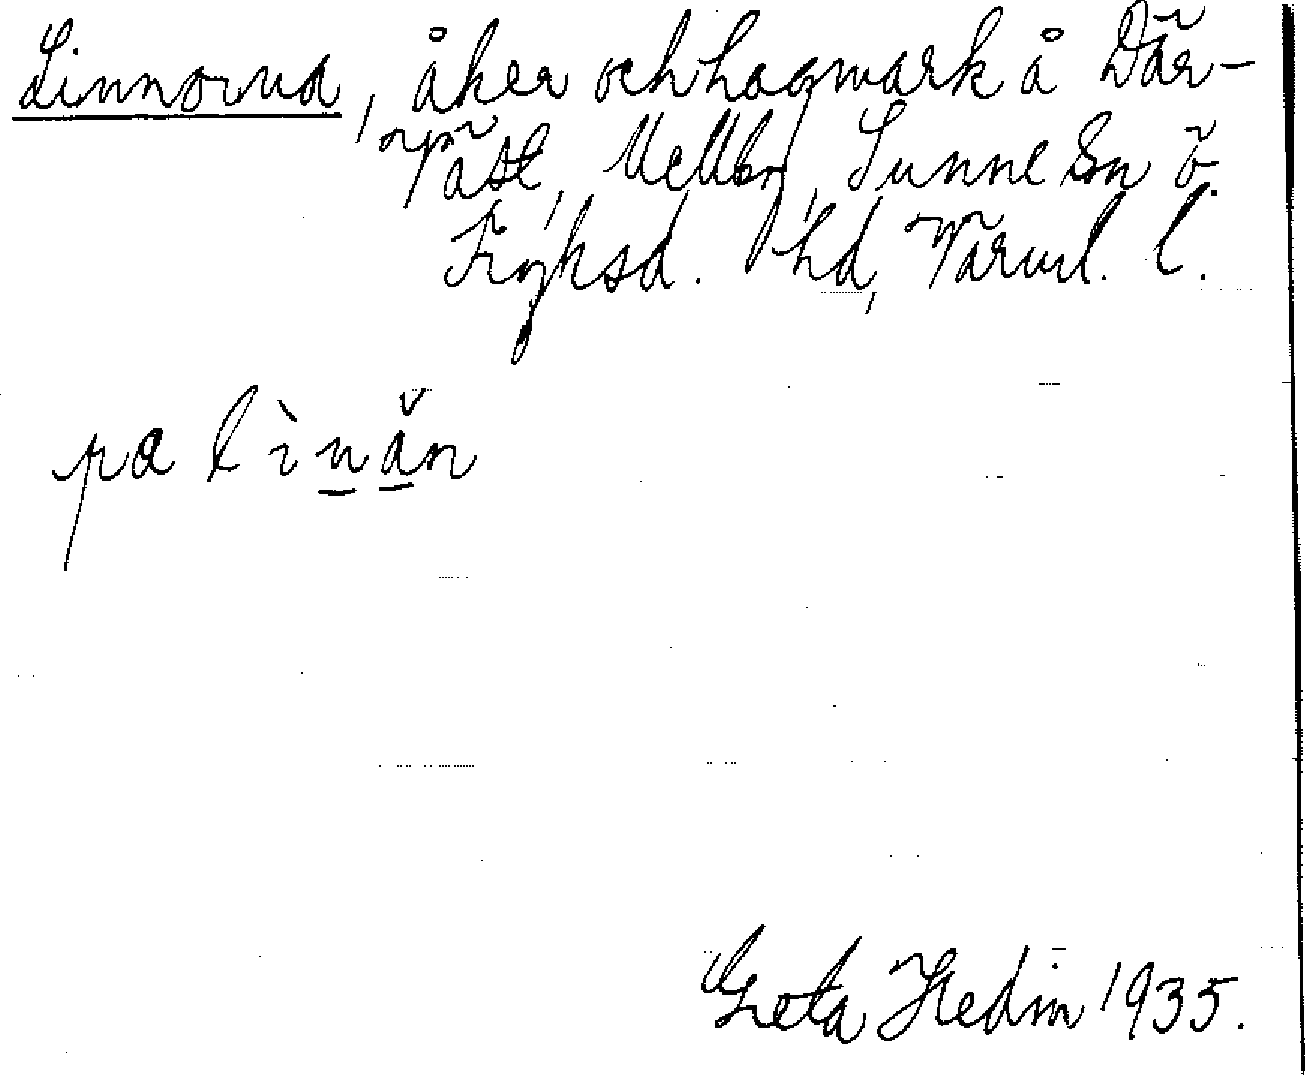 Linnorud, åker och hagmark å Där-
Väst, Mellby, Sunne sn ö.
Fryksd. hd, Värml. l.
pa lìnăn
Greta Hedin 1935.